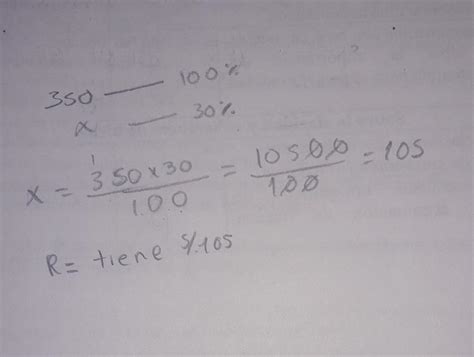 350 — 100%
x — 30%
x = 350x30/100 = 10500/100 = 105
R= tiene S/.105